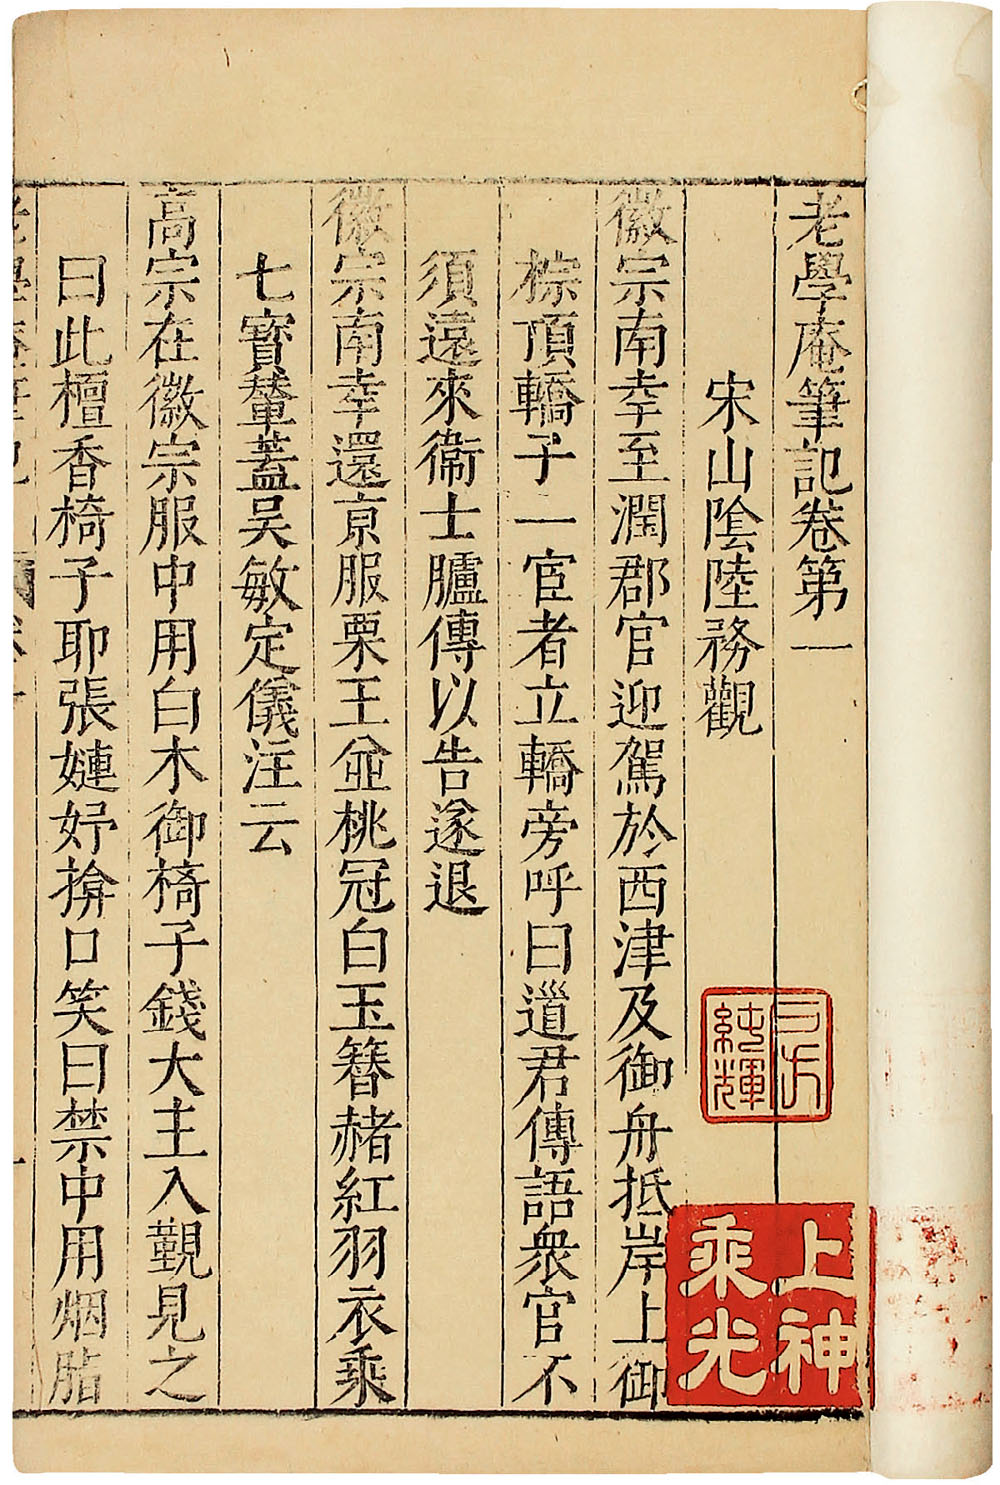 老學庵筆記卷第一
宋山陰陸務觀
徽宗南幸至潤郡官迎駕於西津及御舟抵岸上御
椶頂轎子一宦者立轎旁呼曰道君傳語衆官不
須遠來衞士臚傳以告遂退
徽宗南幸還京服栗玉並桃冠白玉簪赭紅羽衣乘
七寳輦蓋吴敏定儀注云
高宗在徽宗服中用白木御椅子錢大主入覲見之
曰此檀香椅子耶張婕妤掩口笑曰禁中用烟脂
純輝
上神
乘光